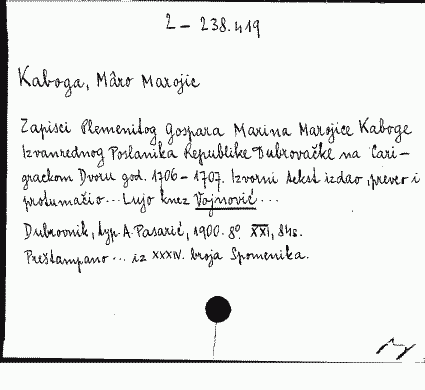 2 - 238.419
Kaboga, Mâro Marojic
Zapisci Plemenitog Gospara Marina Marojice Kaboge
Izvanrednog Poslanika Republike Dubrovačke na Cari-
gradkom Dvoru god. 1706 - 1707. Izvorni tekst izdao, preveo i
protumačio... Lujo knez Vojnović...
Dubrovnik, typ. A. Pasarić, 1900. 8º XXI, 84s.
Preštampano... iz XXXIV. broja Spomenika.